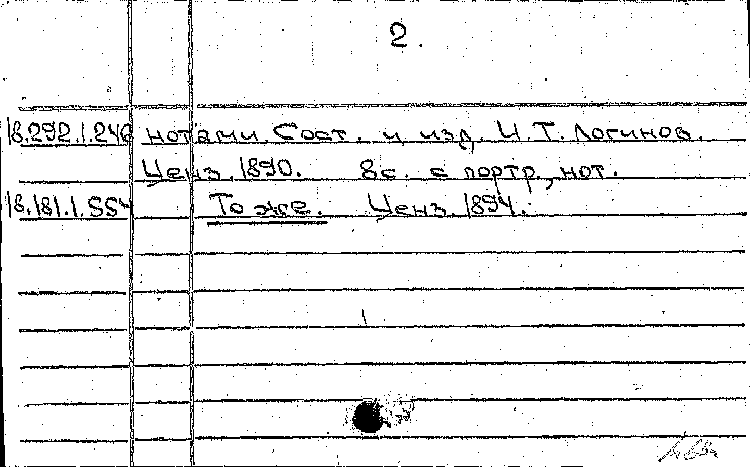 2.
18.292.1.246 нотами. Сост. и изд. И.Т. Логинов.
Ценз. 1890. 8с. с портр., нот.
18.181.1.554 То же. Ценз. 1894.